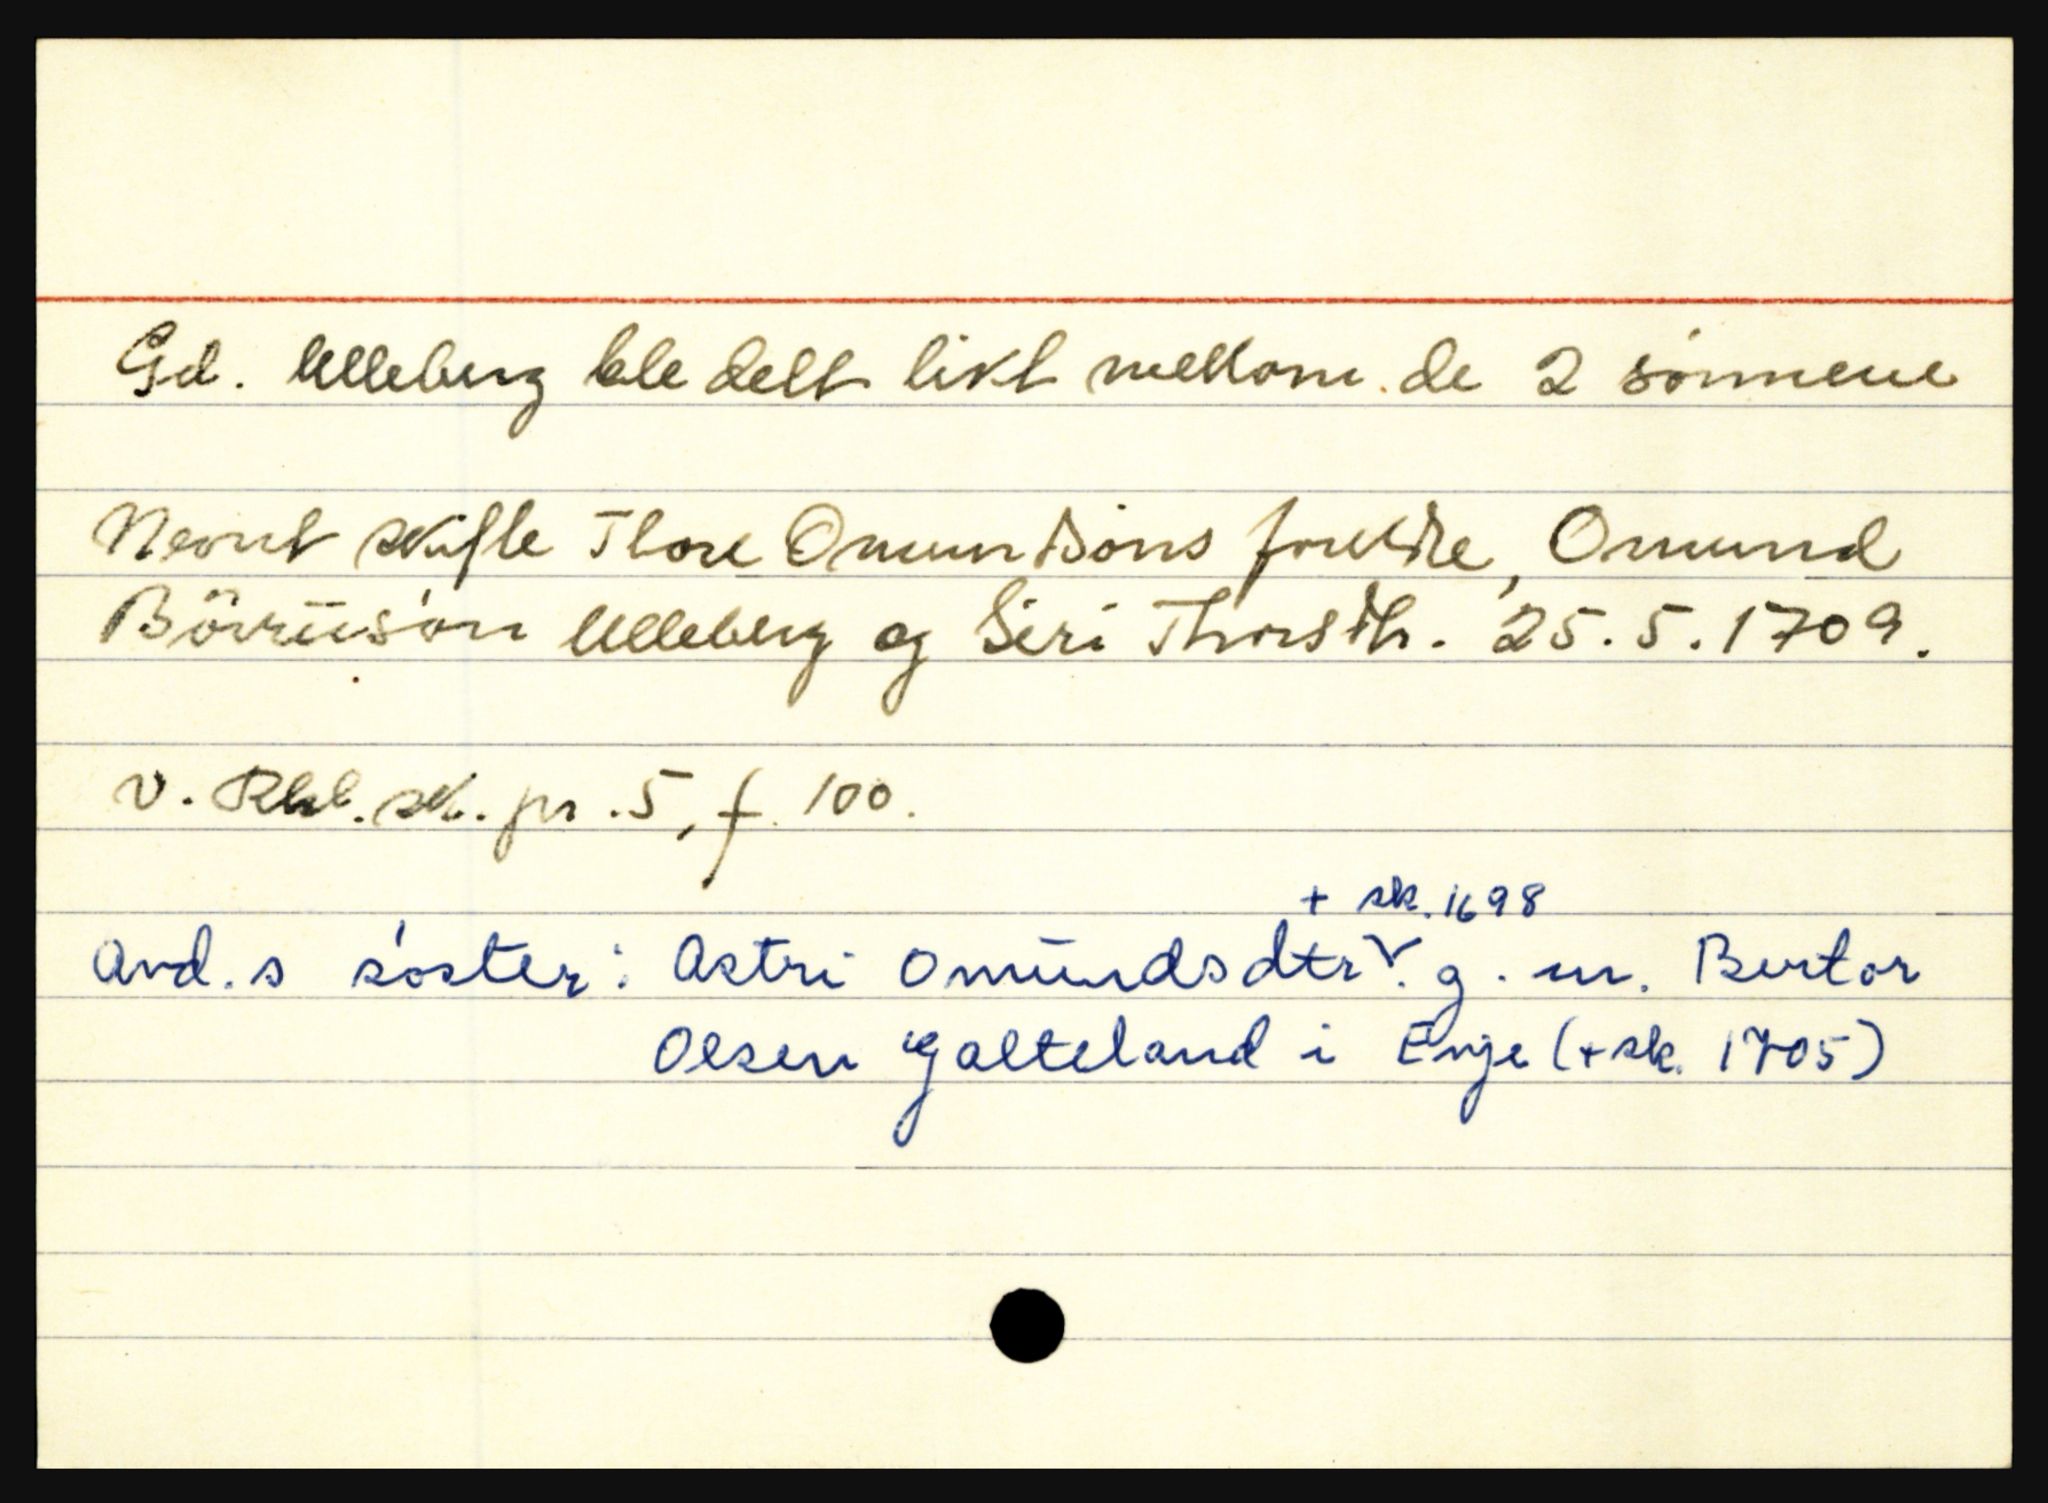 Gd. Ulleberg ble delt likt mellom de 2 sønnene
Nevnt skifte Thore Omundsøns foreldre, Omund
Bövriisøn Ulleberg og Siri Thorsdtr. 25.5.1709.
v. Rbl. sk. pr. 5, f. 100.
+ sk. 1698
Avd.s søster: Astri Omundsdtr. g. m. Bertor
Olsen Galteland i Evje (+ sk. 1705)